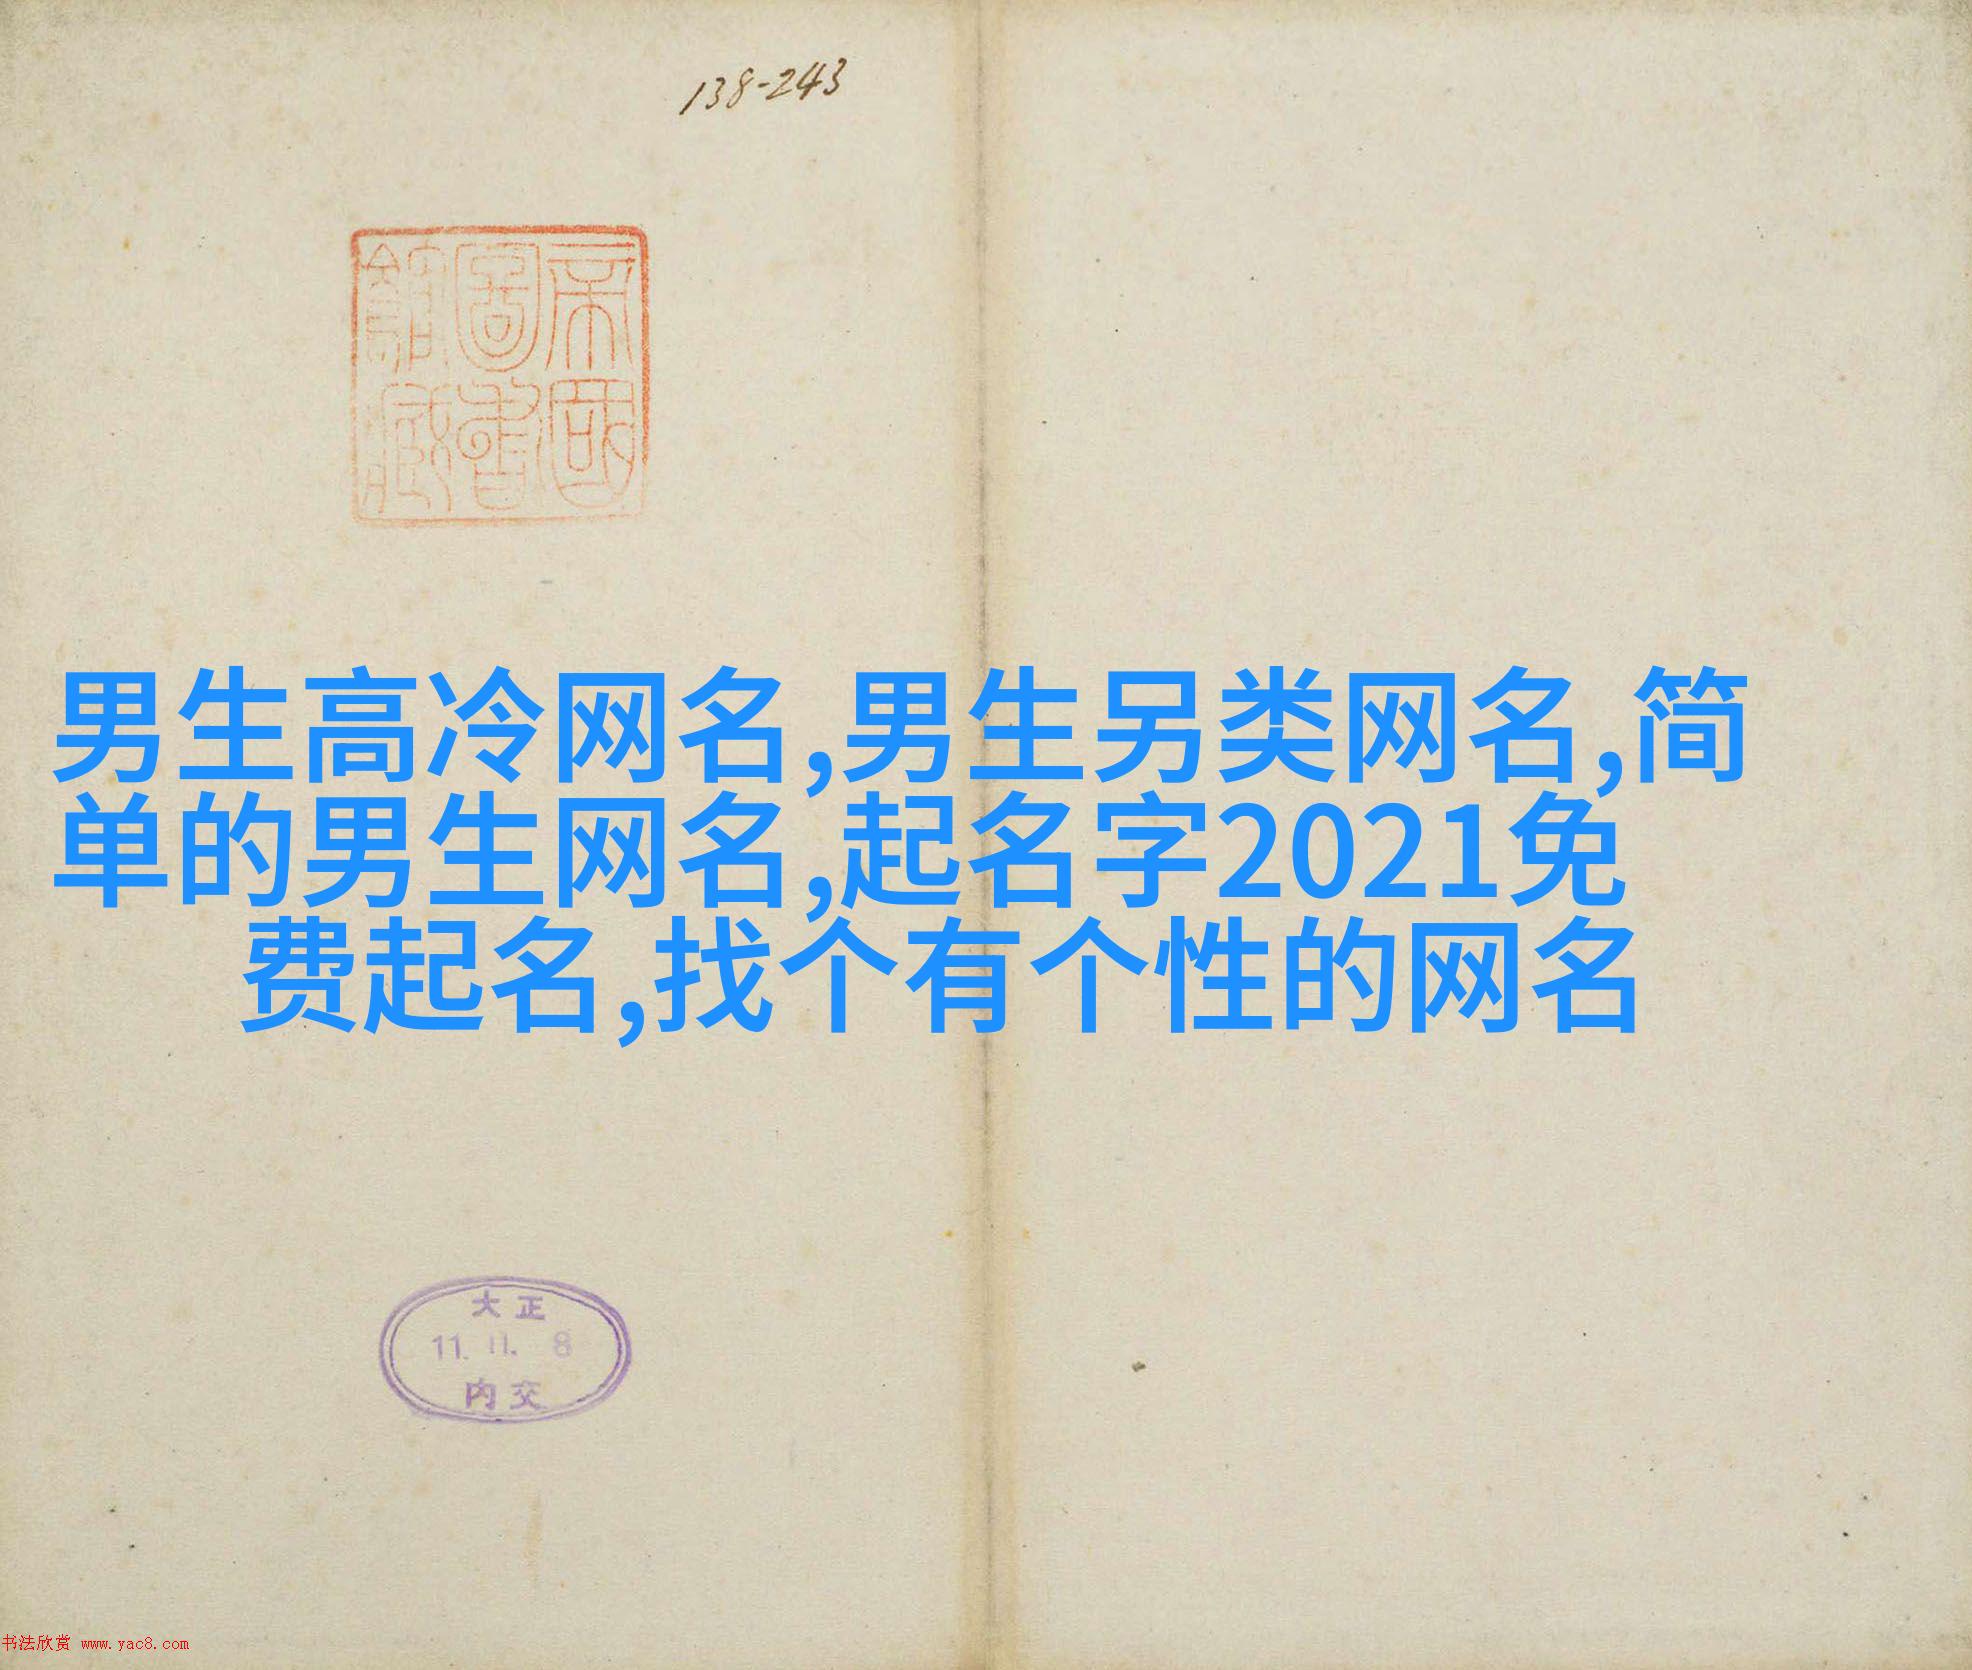 138-243
帝國
圖書
館藏
男生高冷网名,男生另类网名,简
单的男生网名,起名字2021免
费起名,找个有个性的网名
大正
11. 11. 8
内交
书法欣赏 www.yac8.com